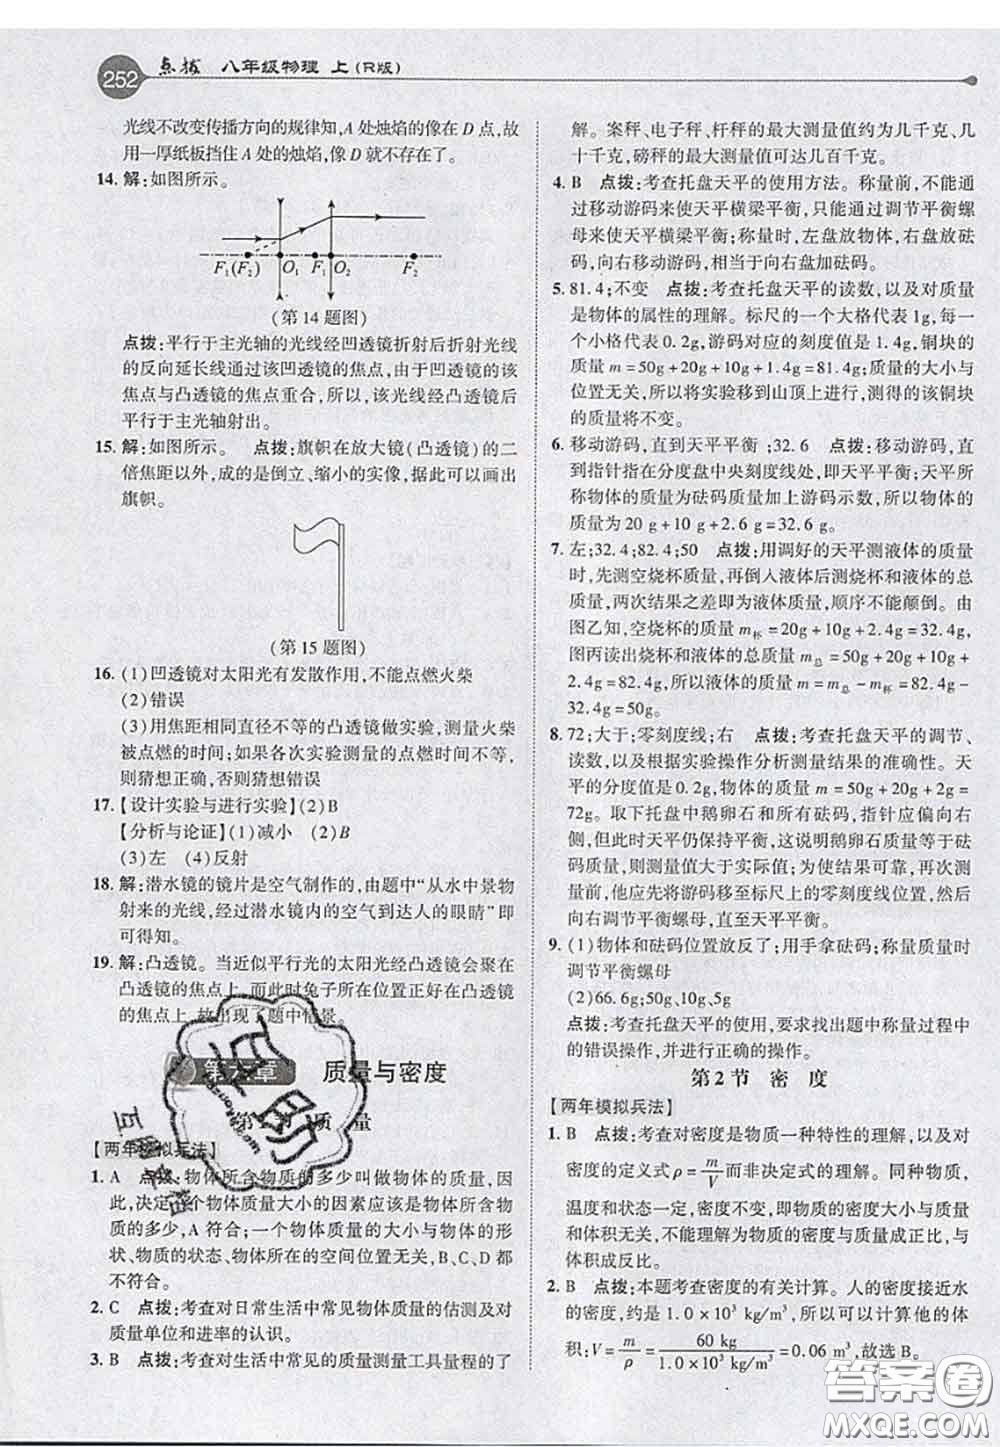 252 点拨 八年级物理 上(R版)
光线不改变传播方向的规律知,A 处烛焰的像在 D 点,故
用一厚纸板挡住 A 处的烛焰,像 D 就不存在了。
14. 解:如图所示。
F₁(F₂) O₁ F₁ O₂ F₂
(第 14 题图)
点拨:平行于主光轴的光线经凹透镜折射后折射光线
的反向延长线通过该凹透镜的焦点,由于凹透镜的该
焦点与凸透镜的焦点重合,所以,该光线经凸透镜后
平行于主光轴射出。
15. 解:如图所示。 点拨:旗帜在放大镜(凸透镜)的二
倍焦距以外,成的是倒立、缩小的实像,据此可以画出
旗帜。
(第 15 题图)
16. (1)凹透镜对太阳光有发散作用,不能点燃火柴
(2)错误
(3)用焦距相同直径不等的凸透镜做实验,测量火柴
被点燃的时间;如果各次实验测量的点燃时间不等,
则猜想正确,否则猜想错误
17. 【设计实验与进行实验】(2)B
【分析与论证】(1)减小 (2)B
(3)左 (4)反射
18. 解:潜水镜的镜片是空气制作的,由题中“从水中景物
射来的光线,经过潜水镜内的空气到达人的眼睛”即
可得知。
19. 解:凸透镜。当近似平行光的太阳光经凸透镜会聚在
凸透镜的焦点上,而此时兔子所在位置正好在凸透镜
的焦点上,故出现了题中情景。
第六章 质量与密度
第 1 节 质 量
【两年模拟兵法】
1. A 点拨:物体所含物质的多少叫做物体的质量,因
此,决定一个物体质量大小的因素应该是物体所含物
质的多少,A 符合;一个物体质量的大小与物体的形
状、物质的状态、物体所在的空间位置无关,B、C、D 都
不符合。
2. C 点拨:考查对日常生活中常见物体质量的估测及对
质量单位和进率的认识。
3. B 点拨:考查对生活中常见的质量测量工具量程的了
解。案秤、电子秤、杆秤的最大测量值约为几千克、几
十千克,磅秤的最大测量值可达几百千克。
4. B 点拨:考查托盘天平的使用方法。称量前,不能通
过移动游码来使天平横梁平衡,只能通过调节平衡螺
母来使天平横梁平衡;称量时,左盘放物体,右盘放砝
码,向右移动游码,相当于向右盘加砝码。
5. 81.4;不变 点拨:考查托盘天平的读数,以及对质量
是物体的属性的理解。标尺的一个大格代表 1g,每一
个小格代表 0.2g,游码对应的刻度值是 1.4g,铜块的
质量 m=50g+20g+10g+1.4g=81.4g;质量的大小与
位置无关,所以将实验移到山顶上进行,测得的该铜块
的质量将不变。
6. 移动游码,直到天平平衡 ;32.6 点拨:移动游码,直
到指针指在分度盘中央刻度线处,即天平平衡;天平所
称物体的质量为砝码质量加上游码示数,所以物体的
质量为 20 g+10 g+2.6 g=32.6 g。
7. 左;32.4;82.4;50 点拨:用调好的天平测液体的质量
时,先测空烧杯质量,再倒人液体后测烧杯和液体的总
质量,两次结果之差即为液体质量,顺序不能颠倒。由
图乙知,空烧杯的质量 m杯=20g+10g+2.4g=32.4g,
图丙读出烧杯和液体的质量 m总=50g+20g+10g+
2.4g=82.4g,所以液体的质量 m=m总-m杯=82.4g-
32.4g=50g。
8. 72;大于;零刻度线;右 点拨:考查托盘天平的调节、
读数,以及根据实验操作分析测量结果的准确性。天
平的分度值是 0.2g,物体的质量=50g+20g+2g=
72g。取下托盘中鹅卵石和所有砝码,指针应偏向右
侧,但此时天平仍保持平衡,这说明鹅卵石质量等于砝
码质量,则测量值大于实际值;为使结果可靠,再次测
量前,他应先将游码移至标尺上的零刻度线位置,然后
向右调节平衡螺母,直至天平平衡。
9. (1)物体和砝码位置放反了;用手拿砝码;称量质量时
调节平衡螺母
(2)66.6g;50g、10g、5g
点拨:考查托盘天平的使用,要求找出题中称量过程中
的错误操作,并进行正确的操作。
第 2 节 密 度
【两年模拟兵法】
1. B 点拨:考查对密度是物质一种特性的理解,以及对
密度的定义式 ρ=m/V 而非决定式的理解。同种物质,
温度和状态一定,密度不变,即物质的密度大小与质量
和体积无关,不能理解为物质的密度与质量成正比,与
体积成反比。
2. B 点拨:本题考查密度的有关计算。人的密度接近水
的密度,约是 1.0×10³ kg/m³,所以可以计算他的体
积:V=m/ρ=60 kg/1.0×10³ kg/m³=0.06 m³,故选 B。
答案圈
MXQE.COM